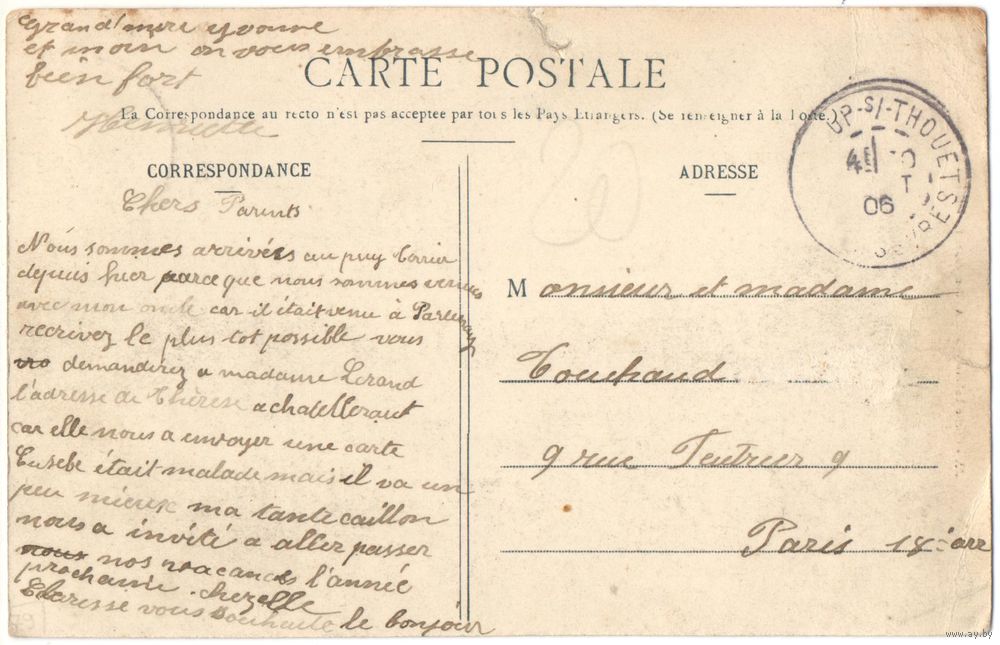 Grand'mere yvonne
et moin on vous embrasse
bien fort
Henriette
CARTE POSTALE
La Correspondance au recto n'est pas acceptée par tous les Pays Etrangers. (Se renseigner à la Poste.)
CORRESPONDANCE
Chers Parents
Nous sommes arrivées au puy
depuis hier parce que nous sommes venues
avec mon oncle car il était venu à Partenay
recrivez le plus tot possible vous
demanderez a madame Lerand
l'adresse de Thérèse a chatelleraut
car elle nous a envoyer une carte
Eusebe était malade mais il va un
peu mieux ma tante caillon
nous a invité a aller passer
nous nos vacances l'année
prochaine chez elle
vous souhaite le bonjour
ADRESSE
Monsieur et madame
Touchaud
9 rue 9
Paris 18e arr
UP-S/-THOUET
SEVRES
06
www.ay.by